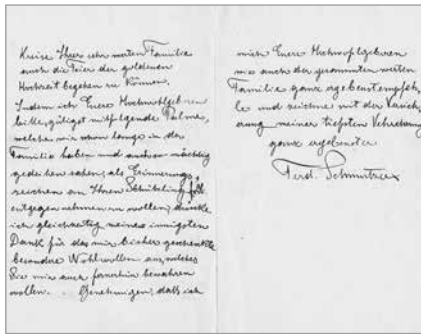 Kreise Ihrer sehr werten Familie
auch die Feier der goldenen
Hochzeit begehen zu können.
Indem ich Euere Hochwohlgeboren
bitte, gütigst mitfolgende Palme,
welche wir schon lange in der
Familie haben und auch so mächtig
gedeihen sahen, als Erinnerungs-
zeichen an Ihren Schützling
entgegennehmen zu wollen, drücke
ich gleichzeitig meinen innigsten
Dank für das mir bisher geschenkte
besondere Wohlwollen aus, welches
Sie mir auch fernerhin bewahren
wollen. Genehmigen, dass ich
mich Euere Hochwohlgeboren
wie auch der gesammten werten
Familie ganz ergebenst empfeh-
le und zeichne mit der Versich-
erung meiner tiefsten Verehrung
ganz ergebenster
Ferd. Schmutzer